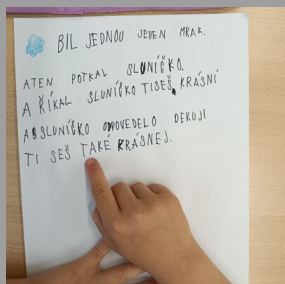 BIL JEDNOU JEDEN MRAK.
ATEN POTKAL SLUNÍČKO.
A ŘÍKAL SLUNÍČKO TISEŠ KRÁSNÍ
A SLUNÍČKO OPOVEDELO DEKUJI
TI SEŠ TAKÉ KRÁSNEJ.